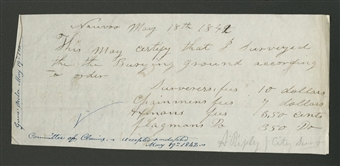 Nauvoo May 18th 1842
This May certify that I surveyed
the the Burying ground according
to order
Surveyers fees 10 dollars
Chainmens fees 7 dollars
Axmans fees 1,50 cents
flagmans Do 3,50 Do
A Ripley City
Committee of Claims accepted
May 19th 1842